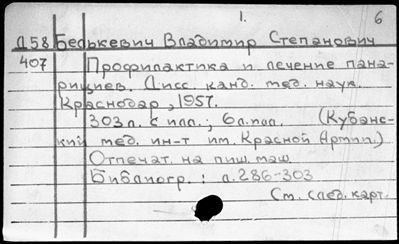 1. 6
Д58 Белькевич Владимир Степанович
407 Профилактика и лечение пана-
рициев. Дисс. канд. мед. наук.
Краснодар, 1957.
303 л. с илл.; 6 л. илл. (Кубанс-
кий мед. ин-т им. Красной Армии.)
Отпечат. на пиш. маш.
Библиогр.: л. 286-303
См. след. карт.